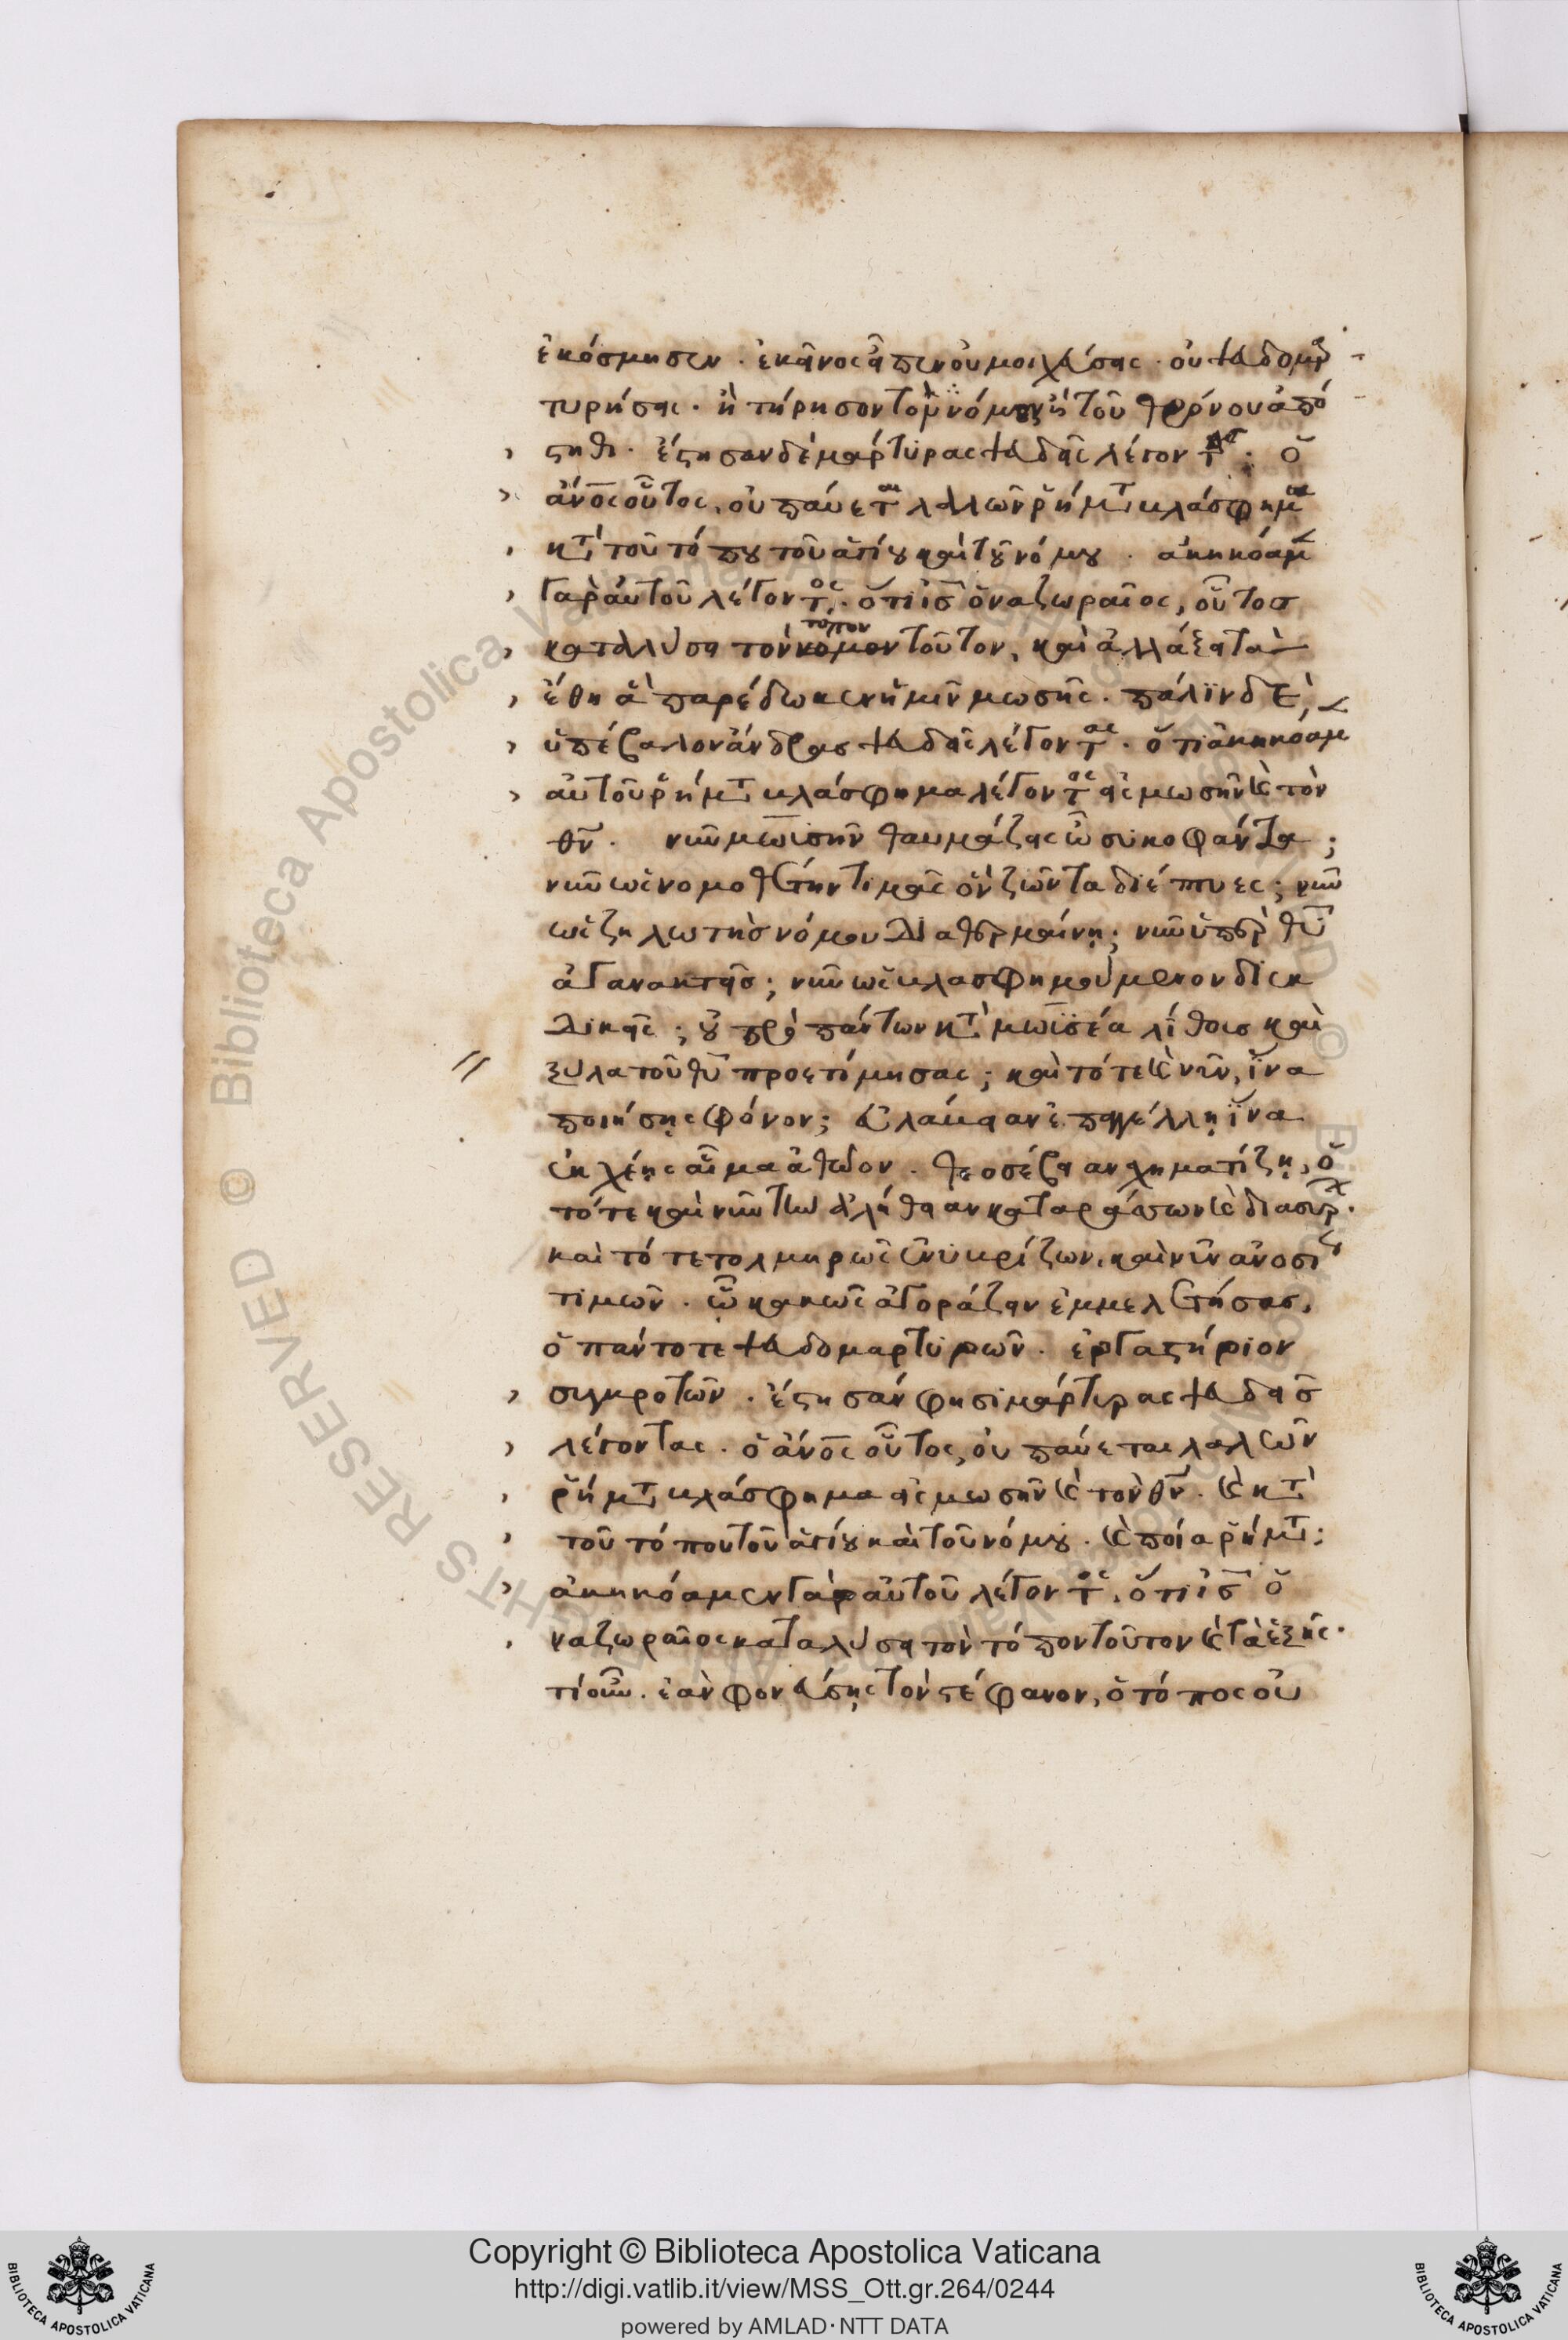 ἐκόσμησεν. ἐκεῖνος εἶπεν οὐ μοιχεύσεις. οὐ ψευδομαρ
τυρήσεις. ἢ τήρησον τὸν νόμον ἢ τοῦ θρόνου ἀπό
στηθι. ἔστησαν δὲ μάρτυρας ψευδεῖς λέγοντας: ὁ
ἄνος οὗτος, οὐ παύεται λαλῶν ῥήματα βλάσφημα
κατὰ τοῦ τόπου τοῦ ἁγίου καὶ τοῦ νόμου. ἀκηκόαμεν
γὰρ αὐτοῦ λέγοντος. ὅτι ἰς ὁ ναζωραῖος, οὗτος
καταλύσει τὸν τόπον τοῦτον, καὶ ἀλλάξει τὰ
ἔθη ἃ παρέδωκεν ἡμῖν μωσῆς. πάλιν δὲ,
ὑπέβαλον ἄνδρας ψευδεῖς λέγοντας. ὅτι ἀκηκόαμεν
αὐτοῦ ῥήματα βλάσφημα λέγοντος εἰς μωσῆν καὶ τὸν
θν. νῦν μωϊσῆν θαυμάζεις ὦ συκοφάντα;
νῦν ὡς νομοθέτην τιμᾷς ὃν ζῶντα διέπτυες; νῦν
ὡς ζηλωτὴς νόμου διαθερμαίνῃ; νῦν ὑπὲρ θυ
ἀγανακτεῖς; νῦν ὡς βλασφημούμενον διεκ
δικεῖς; οὐ πρὸ πάντων κατὰ μωϊσέα λίθοις καὶ
ξύλα τοῦ θυ προετίμησας; καὶ τότε καὶ νῦν, ἵνα
ποιήσῃς φόνον; εὐλάβειαν ἐπαγγέλλῃ ἵνα
ἐκχέῃς αἷμα ἀθῶον. θεοσέβειαν σχηματίζῃ, ὁ
τότε καὶ νῦν τὴν ἀλήθειαν καταράσσων καὶ διασύρων.
καὶ τότε τολμηρῶς ἐνυβρίζων, καὶ νῦν ἀνοσίως
τιμῶν. ὢ κακῶς ἀγοράζειν ἐμμελετήσας,
ὁ πάντοτε ψευδομαρτυρῶν. ἐργαστήριον
συγκροτῶν. ἔστησάν φησι μάρτυρας ψευδεῖς
λέγοντας. ὁ ἄνος οὗτος, οὐ παύεται λαλῶν
ῥήματα βλάσφημα εἰς μωσῆν καὶ τὸν θν. καὶ κατὰ
τοῦ τόπου τοῦ ἁγίου καὶ τοῦ νόμου. καὶ ποῖα ῥήματα;
ἀκηκόαμεν γὰρ αὐτοῦ λέγοντος, ὅτι ἰς ὁ
ναζωραῖος καταλύσει τὸν τόπον τοῦτον καὶ τὰ ἑξῆς.
τί οὖν. ἐὰν φονεύσῃς τὸν στέφανον, ὁ τόπος οὐ
Copyright © Biblioteca Apostolica Vaticana
http://digi.vatlib.it/view/MSS_Ott.gr.264/0244
powered by AMLAD·NTT DATA